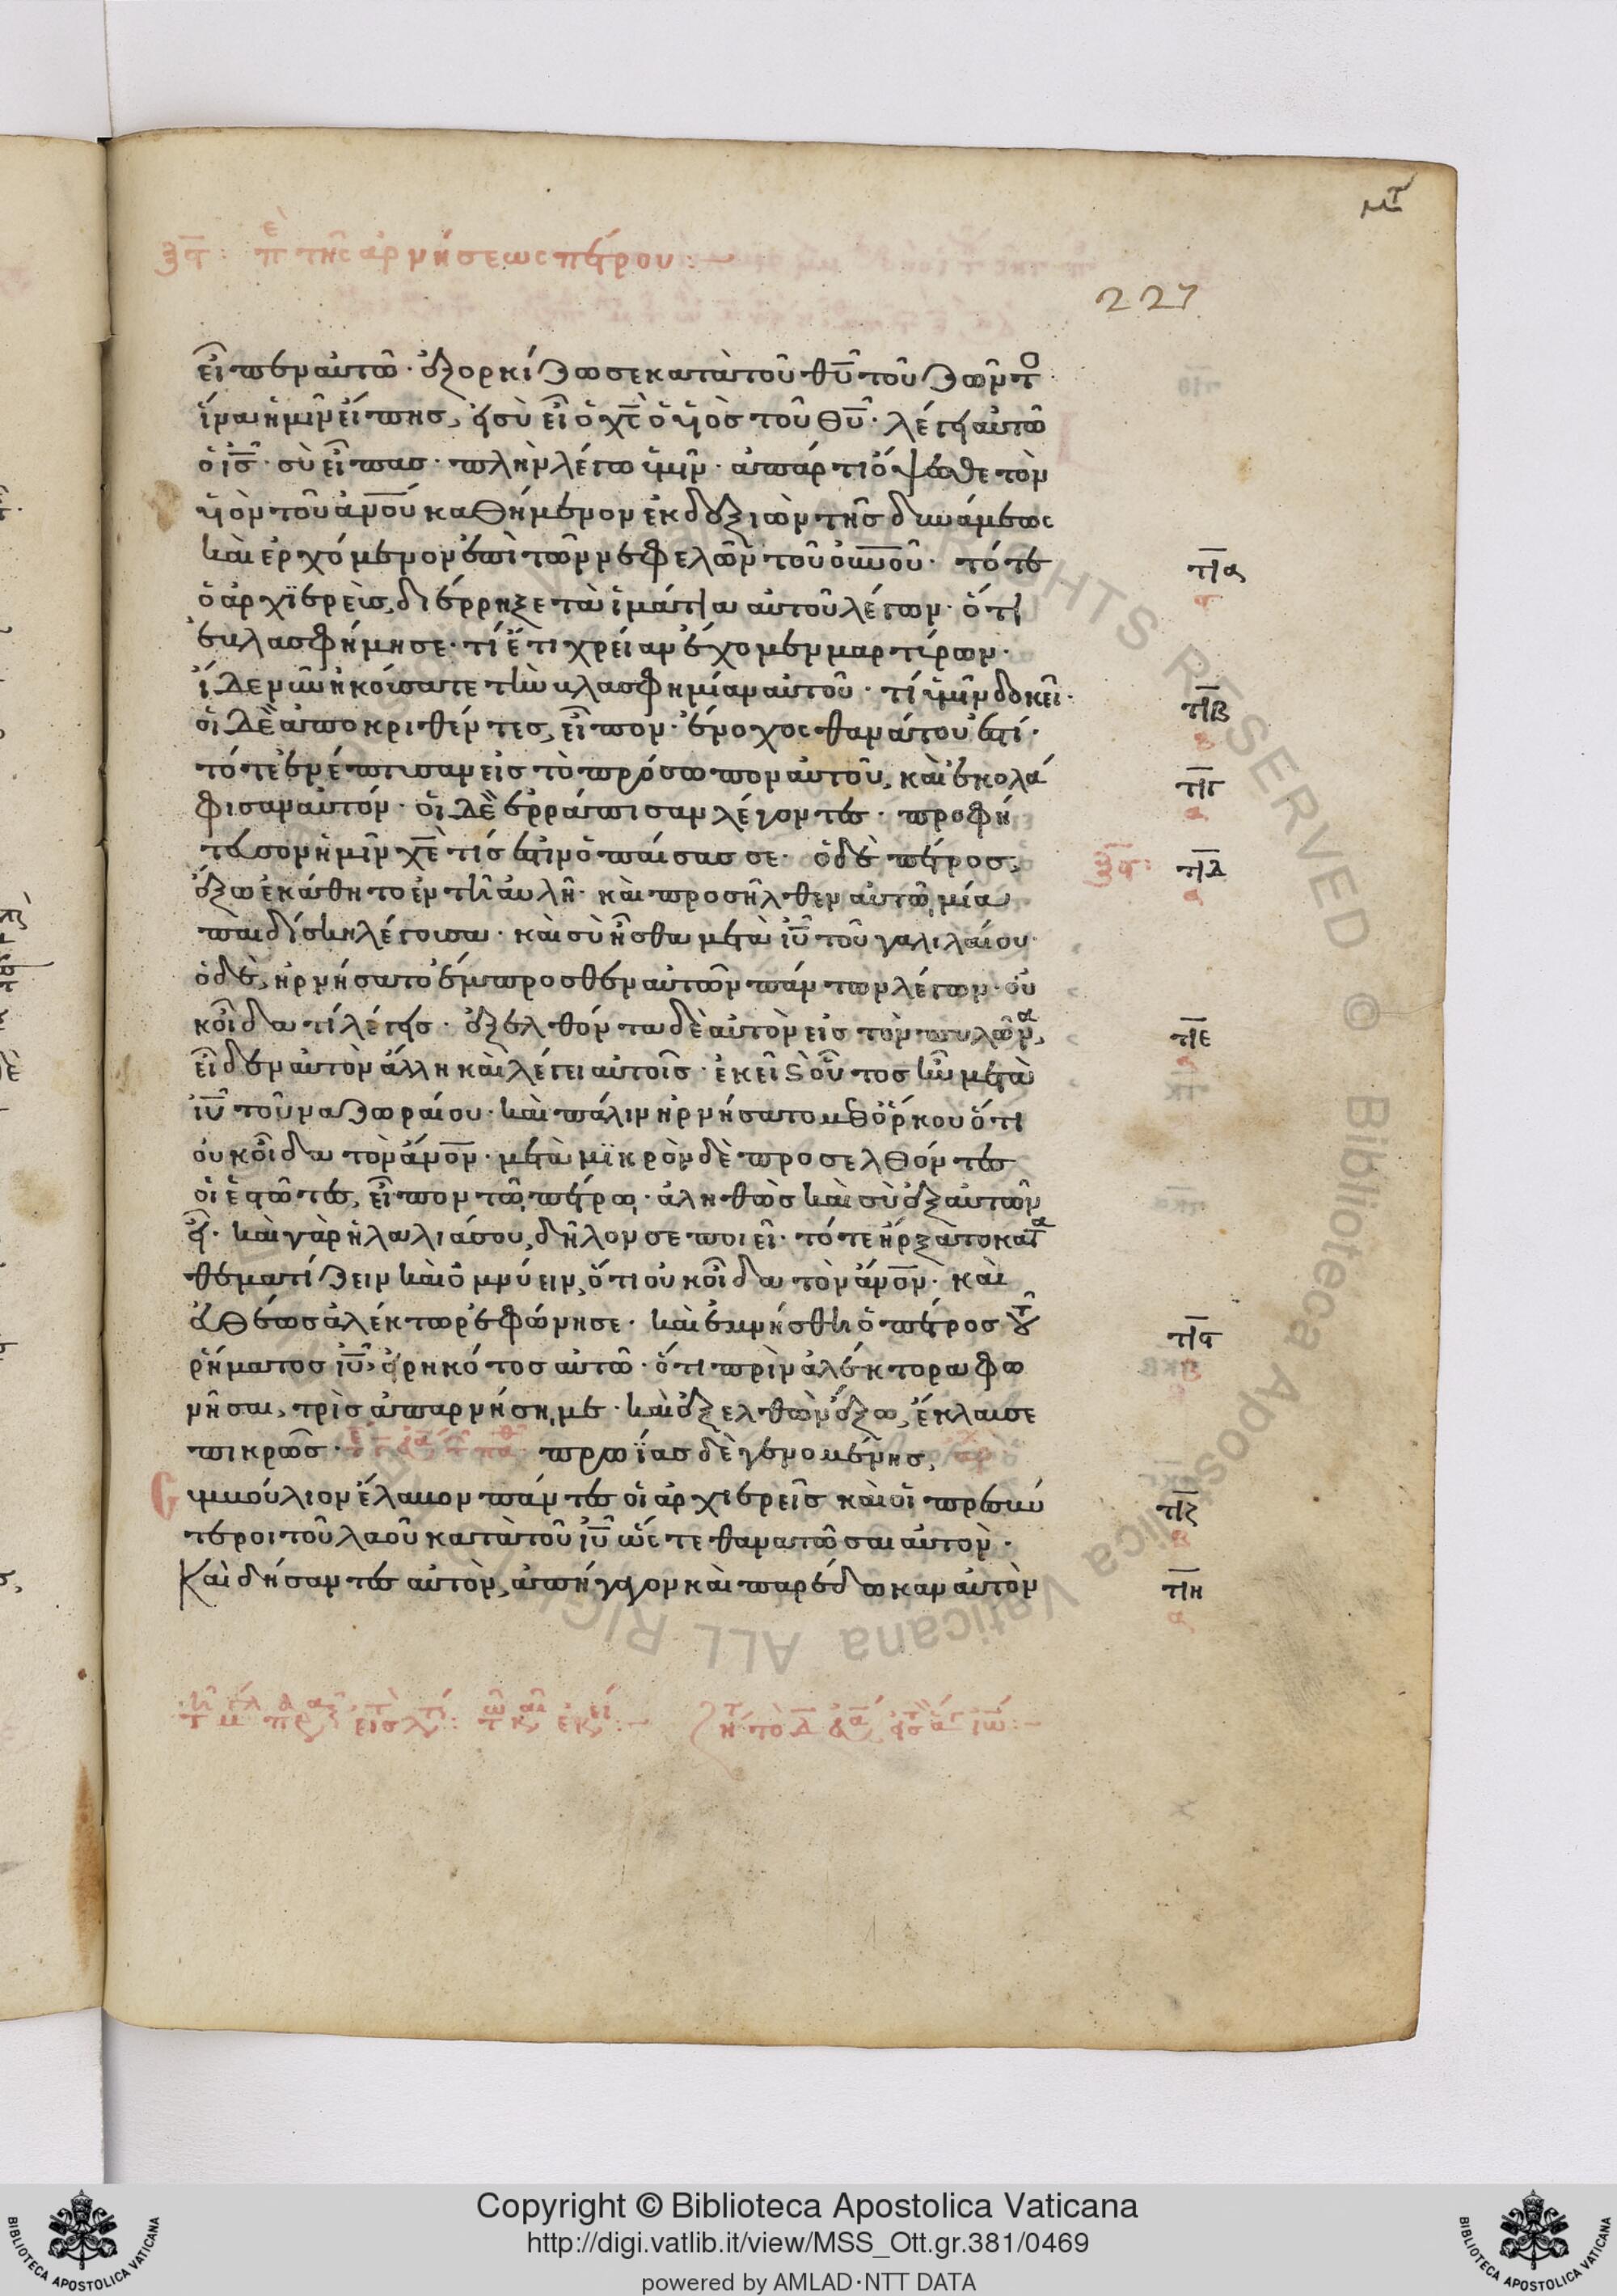 μτ
ξϛ: πε τῆς ἀρνήσεως πέτρου:~
227
εἶπεν αὐτῶ· ἐξορκίζω σε κατὰ τοῦ θυ τοῦ ζῶντο
ἵνα ἡμῖν εἴπης, εἰ σὺ εἶ ὁ χς ὁ υἱὸς τοῦ θυ· λέγει αὐτῶ
ὁ ις· σὺ εἶπας· πλὴν λέγω ὑμῖν· ἀπάρτι ὄψεσθε τὸν
υἱὸν τοῦ ἀνου καθήμενον ἐκ δεξιῶν τῆς δυνάμεως
καὶ ἐρχόμενον ἐπὶ τῶν νεφελῶν τοῦ οὐνου· τότε
ὁ ἀρχϊερεὺς, διέρρηξε τὰ ἱμάτια αὐτοῦ λέγων· ὅτι
ἐβλασφήμησε· τί ἔτι χρείαν ἔχομεν μαρτύρων·
ἴδε νῦν ἠκούσατε τὴν βλασφημίαν αὐτοῦ· τί ὑμῖν δοκεῖ·
οἱ δὲ ἀποκριθέντες, εἶπον· ἔνοχος θανάτου ἐστί·
τότε ἐνέπτυσαν εἰς τὸ πρόσωπον αὐτοῦ, καὶ ἐκολά
φισαν αὐτόν· οἱ δὲ ἐρράπισαν λέγοντες· προφή
τευσον ἡμῖν χε τίς ἐστιν ὁ παίσας σε· ὁ δὲ πέτρος,
ἔξω ἐκάθητο ἐν τῆ αὐλῆ· καὶ προσῆλθεν αὐτῶ, μία
παιδίσκη λέγουσα· καὶ σὺ ἦσθα μετὰ ιυ τοῦ γαλιλαίου·
ὁ δὲ, ἠρνήσατο ἔμπροσθεν αὐτῶν πάντων λέγων· οὐ
κοἶδα τί λέγεις· ἐξελθόντα δὲ αὐτὸν εἰς τὸν πυλῶνα,
εἶδεν αὐτὸν ἄλλη καὶ λέγει αὐτοῖς· ἐκεῖ ϛ οὗτος ἦν μετὰ
ιυ τοῦ ναζωραίου· καὶ πάλιν ἠρνήσατο μεθ ὅρκου ὅτι
οὐκ οἶδα τὸν ἄνον· μετὰ μϊκρὸν δὲ προσελθόντες
οἱ ἑστῶτες, εἶπον τῶ, πέτρω, ἀληθῶς καὶ σὺ ἐξ αὐτῶν
εἶ· καὶ γὰρ ἡ λαλιά σου, δῆλον σε ποιεῖ· τότε ἤρξατο κατα
θεματίζειν καὶ ὀμνύειν, ὅτι οὐκ οἶδα τὸν ἄνον· καὶ
εὐθέως ἀλέκτωρ ἐφώνησε· καὶ ἐμνήσθη ὁ πέτρος τȣ
ῥήματος ιυ, εἰρηκότος αὐτῶ· ὅτι πρὶν ἀλέκτορα φω
νῆσαι, τρὶς ἀπαρνήση, με· καὶ ἐξελθὼν ἔξω, ἔκλαυσε
πικρῶς· πρωϊας δὲ γενομένης,
Συμβούλιον ἔλαβον πάντες οἱ ἀρχιερεῖς καὶ οἱ πρεσβύ
τεροι τοῦ λαοῦ κατὰ τοῦ ιυ ὥστε θανατῶσαι αὐτον·
Καὶ δήσαντες αὐτὸν, ἀπήγαγον καὶ παρέδωκαν αὐτὸν
τια
α
τιβ
β
τιγ
α
ξϛ:
τιδ
α
τιε
α
τιϛ
β
τιζ
β
τιη
α
Copyright © Biblioteca Apostolica Vaticana
http://digi.vatlib.it/view/MSS_Ott.gr.381/0469
powered by AMLAD·NTT DATA
BIBLIOTECA APOSTOLICA VATICANA
BIBLIOTECA APOSTOLICA VATICANA